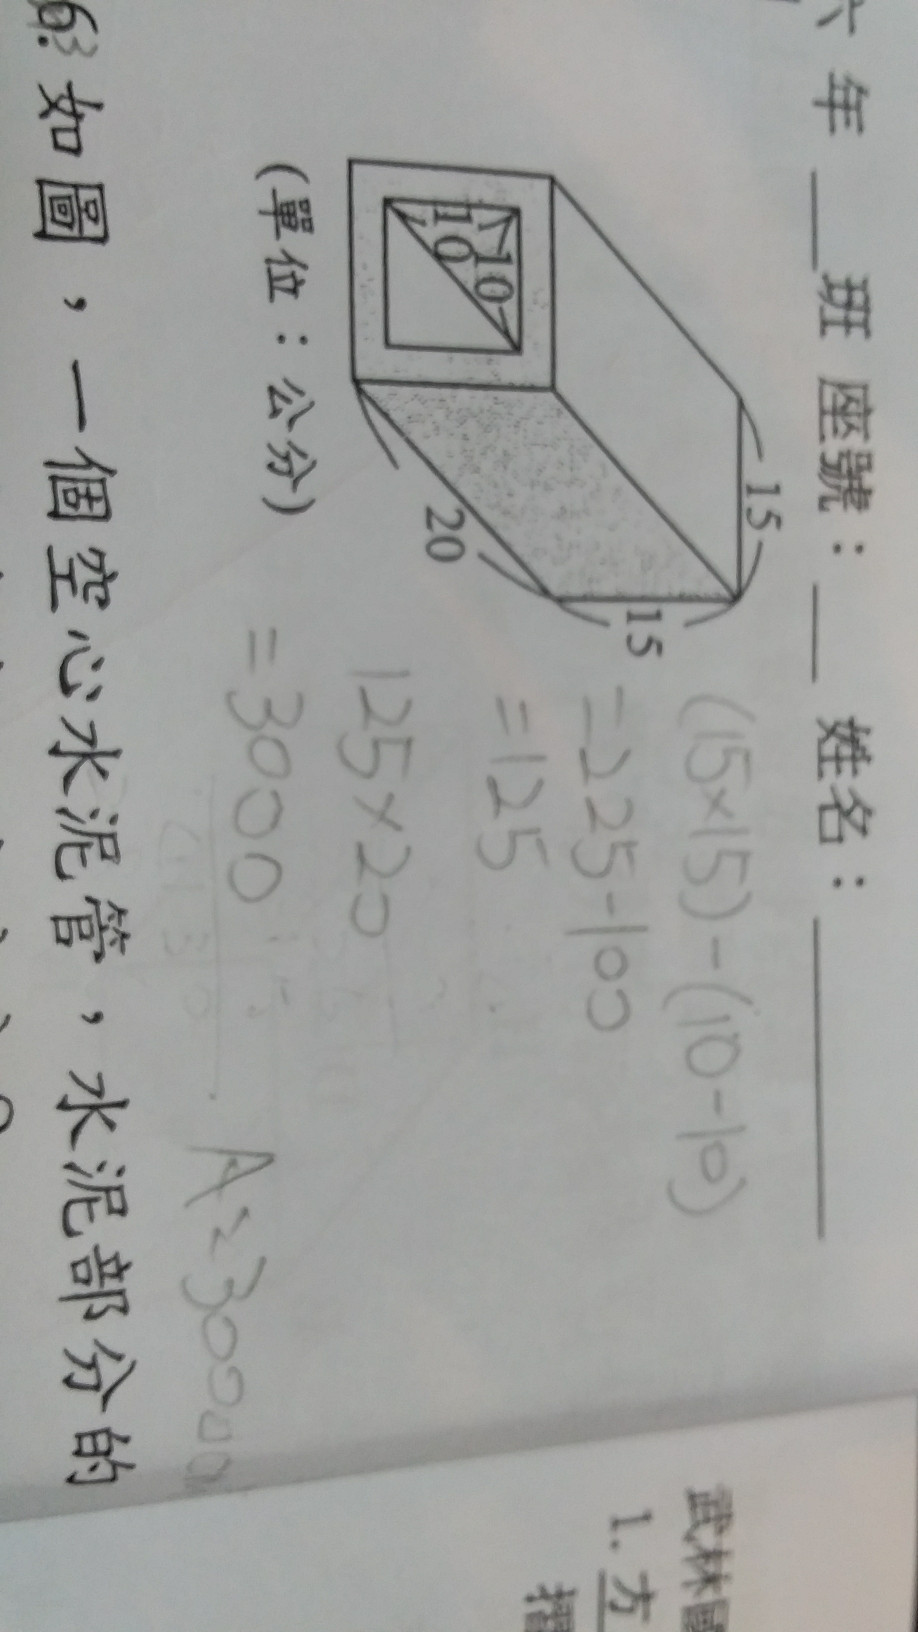 六 年 __ 班 座號：__ 姓名：______
15
15
20
10
10
(單位：公分)
(15×15)-(10-10)
=225-100
=125
125×20
=3000
A:3000
6. 如圖，一個空心水泥管，水泥部分的
武林
1. 方